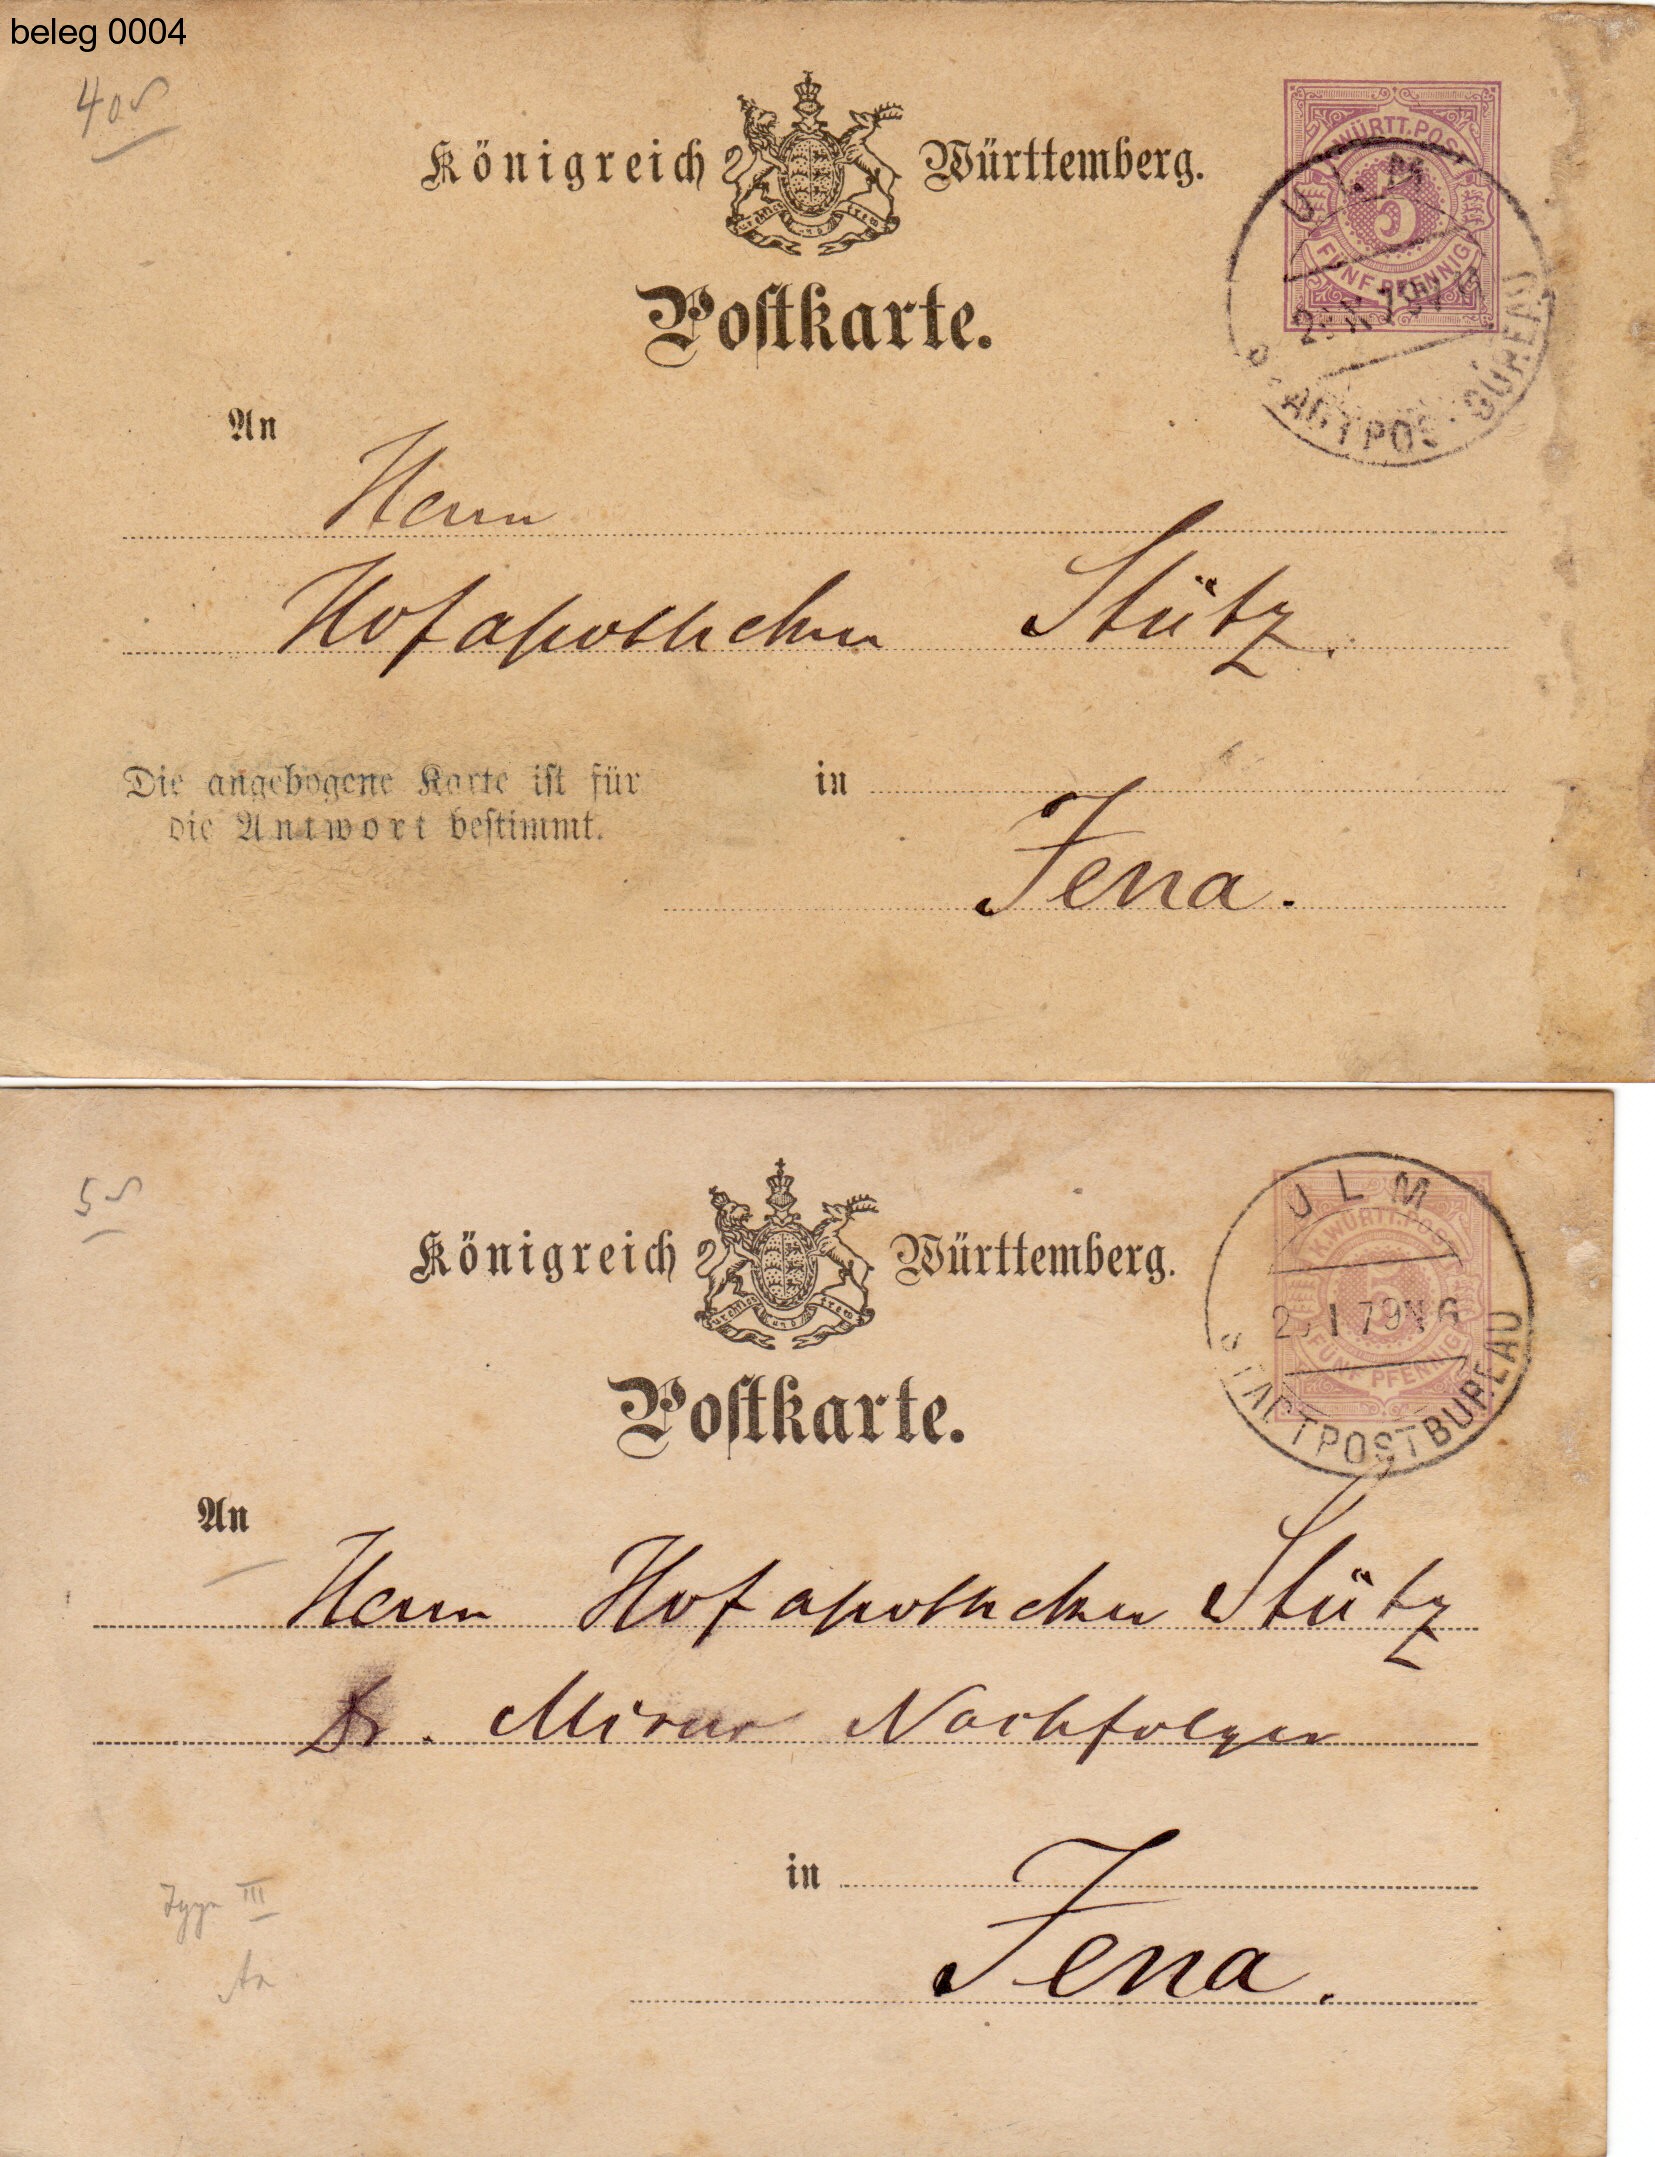 beleg 0004
40
Königreich Württemberg.
furchtlos und trew
Postkarte.
K. WÜRTT. POST
5
FÜNF PFENNIG
ULM
STADTPOSTBUREAU
An
Herrn
Hofapotheker Stütz.
Die angebogene Karte ist für
die Antwort bestimmt.
in
Jena.
5
Königreich Württemberg.
furchtlos und trew
Postkarte.
K. WÜRTT. POST
5
FÜNF PFENNIG
ULM
I 79 N 6
STADTPOSTBUREAU
An
Herrn Hofapotheker Stütz
Dr. Mirus Nachfolger
in
Jena.
Type III